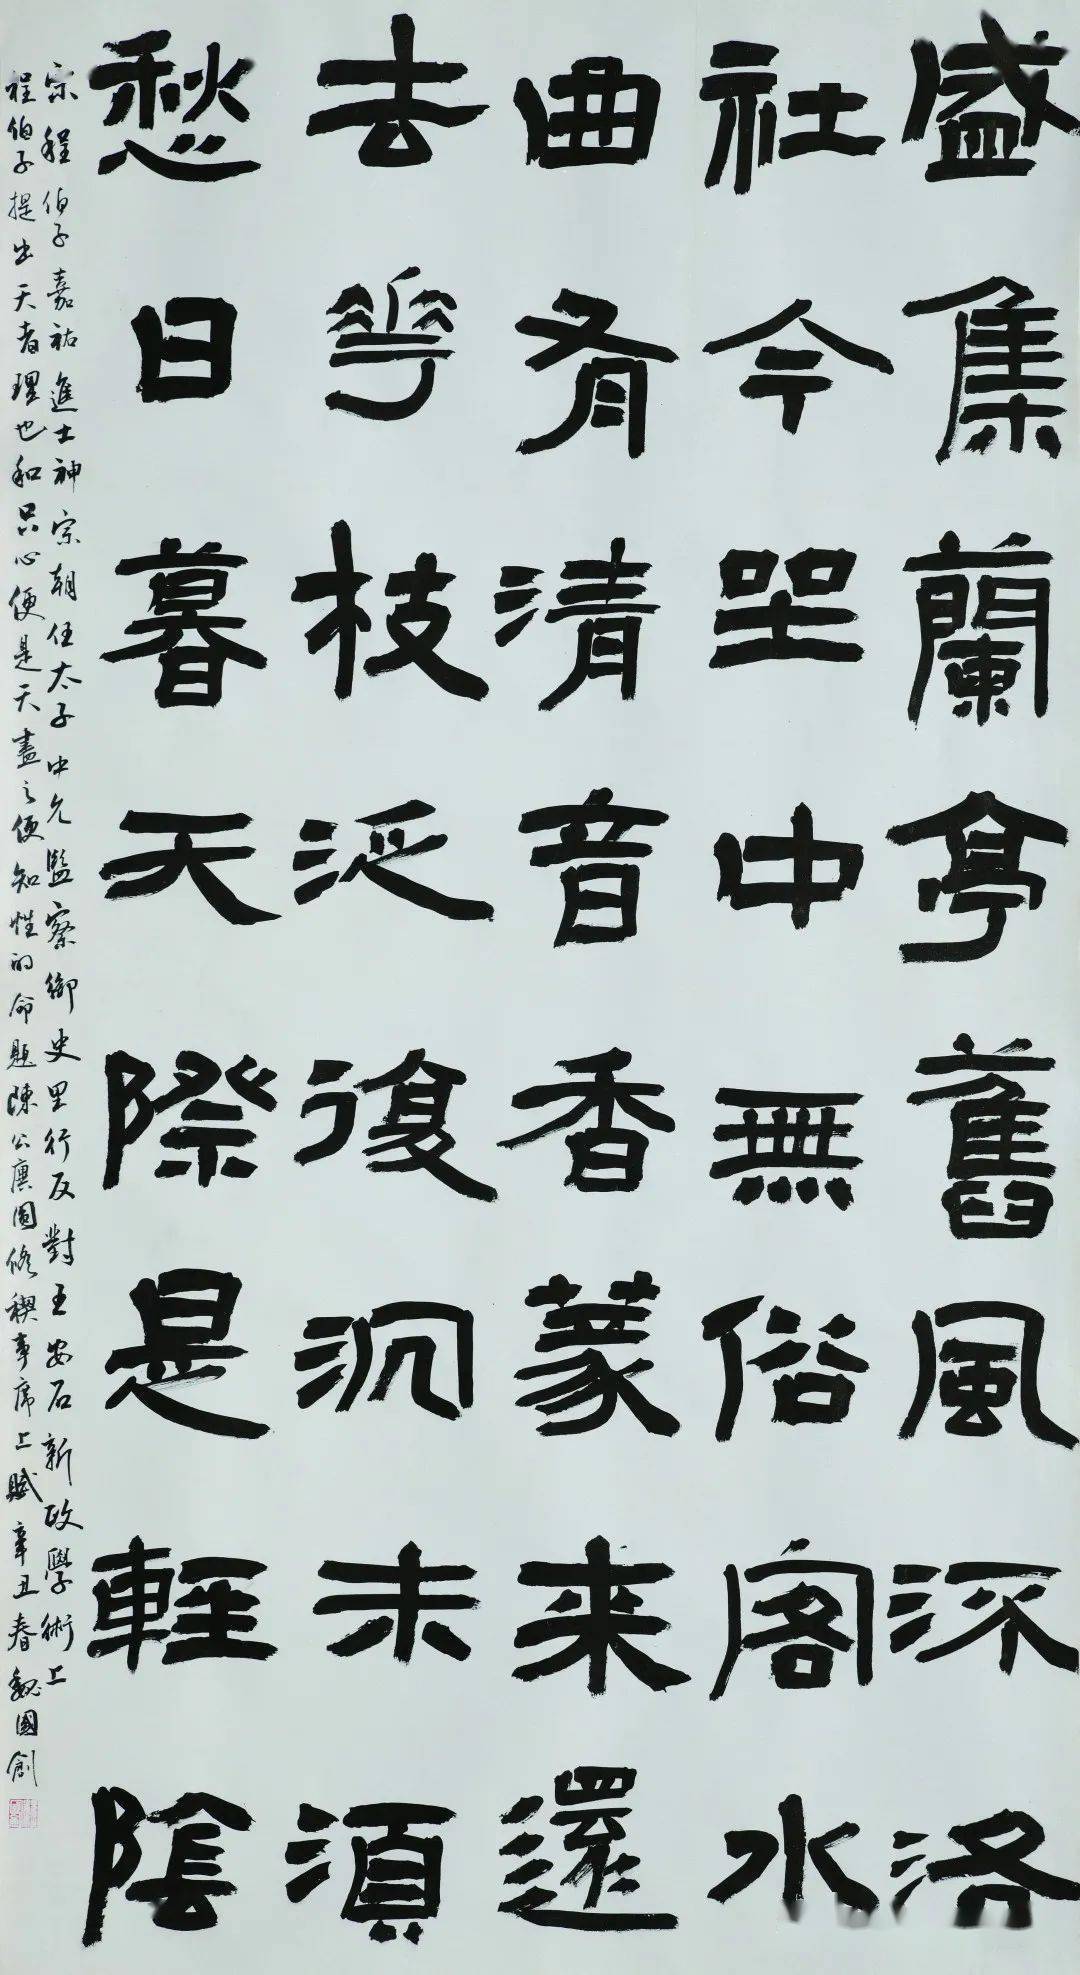 盛集蘭亭舊風流洛
社今坐中無俗客水
曲有清音香篆来還
去花枝泛復沉未須
愁日暮天際是輕陰
宋程伯子嘉祐進士神宗朝任太子中允監察御史里行反對王安石新政學術上
程伯子提出天者理也和只心便是天盡之便知性的命題陳公廙園修禊事席上賦辛丑春魏國創